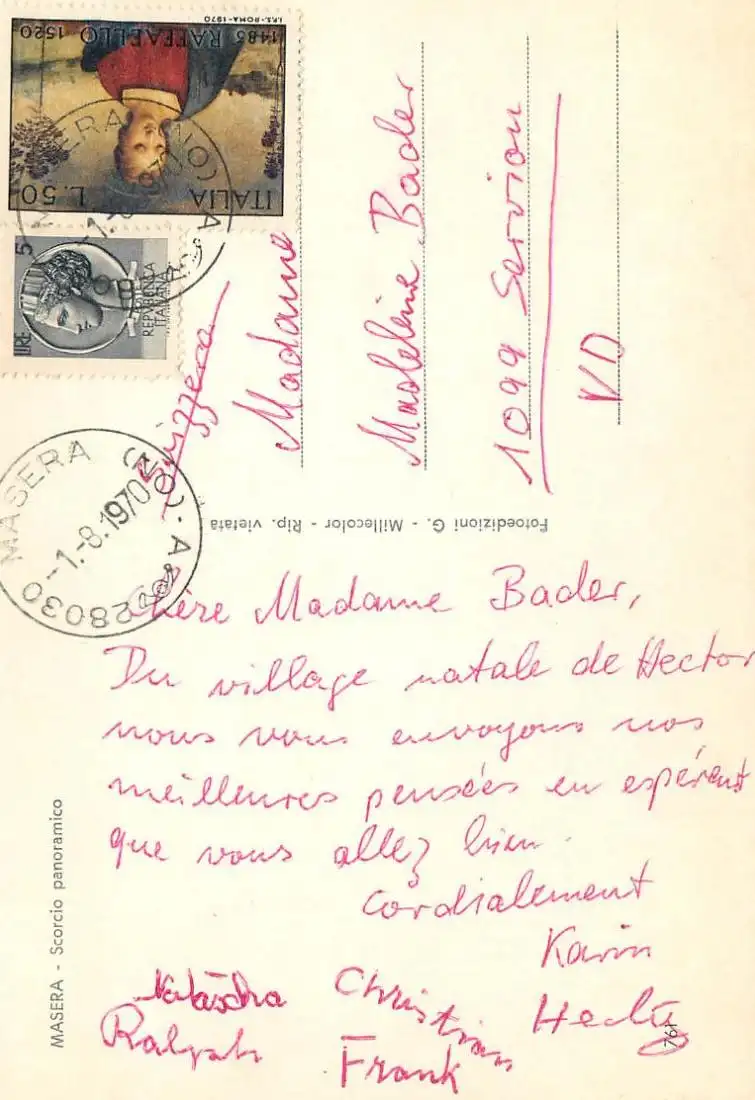 I.P.S.-ROMA-1970
1485 RAFFAELLO 1520
ITALIA L.50
5 LIRE
REPVBBLICA
ITALIANA
MASERA (NO)
MASERA (NO) · A
28030
-1.-8.1970
Svizzera
Madame
Madeleine Bader
1099 Servion
VD
Fotoedizioni G. - Millecolor - Rip. vietata
Chère Madame Bader,
Du village natale de Hector
nous vous envoyons nos
meilleures pensées en espérent
que vous allez bien.
Cordialement
Karin
Natascha Christian Hector
Ralph Frank
MASERA - Scorcio panoramico
761